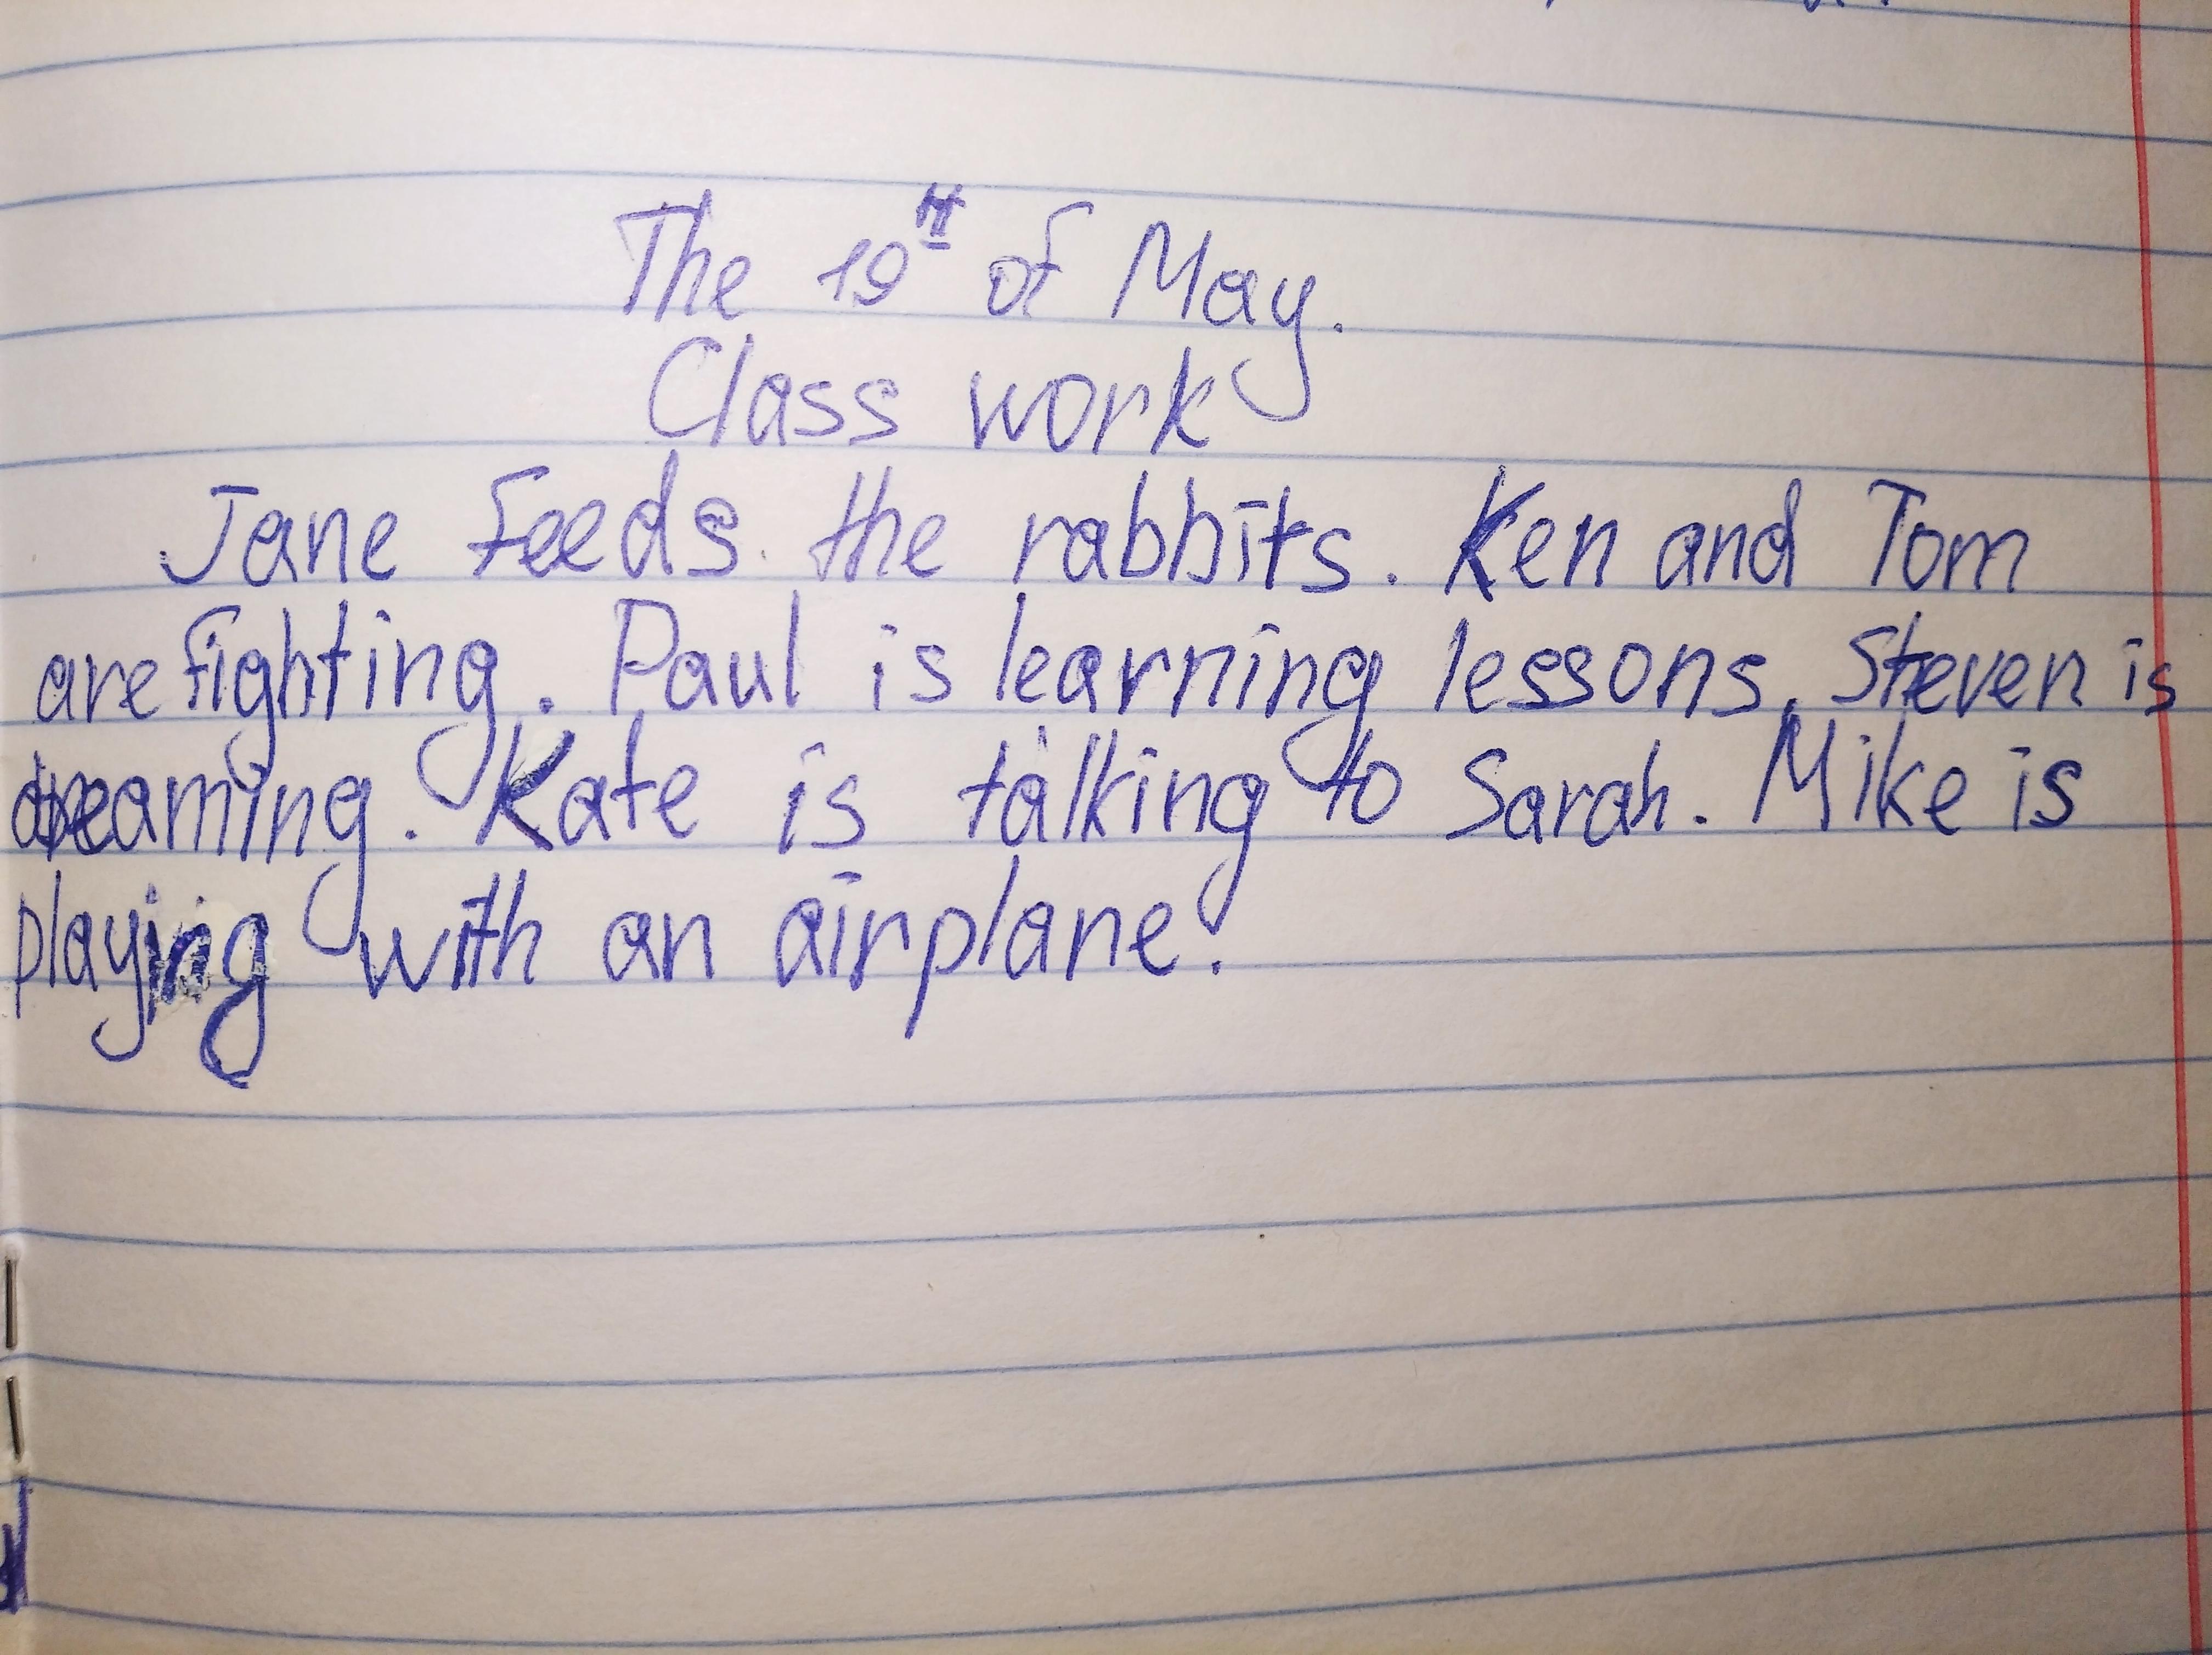 The 19th of May.
Class work
Jane feeds the rabbits. Ken and Tom
are fighting. Paul is learning lessons. Steven is
dreaming. Kate is talking to Sarah. Mike is
playing with an airplane.